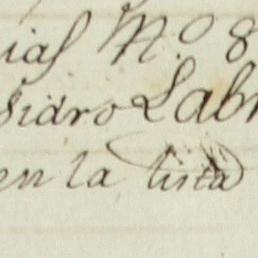 ias N.º 8
sidro Labr
en la lista